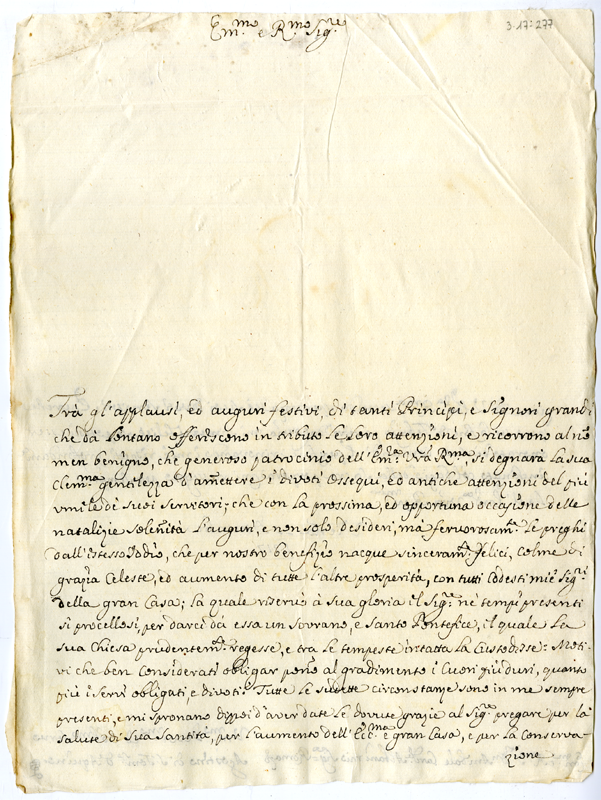 Em.mo e R.mo Sig.re
3-17:277
Trà gl'applausi, ed auguri festivi, di tanti Principi, e Signori grandi
che dà lontano offeriscono in tributo le loro attenzioni, e ricorrono al no
men benigno, che generoso patrocinio dell'Em.za V.ra R.ma, si degnarà la sua
Clem.ma gentilezza d'amettere i divoti ossequi, ed antiche attenzioni del più
umile di suoi servitori; che con la prossima, ed opportuna occazione delle
natalizie solenità l'auguri, e non solo desideri, mà fervorosam.te le preghi
dall'istesso Iddio, che per nostro benefizio nacque sinceram.te felici, colme di
grazia Celeste, ed aumento di tutte l'altre prosperità, con tutti codesti miei Sig.ri
della gran Casa; la quale riservò à sua gloria il Sig.re nè tempi presenti
si procellosi, per darci da essa un Sovrano, e Santo Pontefice, il quale la
sua Chiesa prudentem.te regesse, e tra le tempeste intatta la Custodisse: Moti-
vi che ben considerati obligar pono al gradimento i Cuori più duri, quanto
più i servi obligati e divoti. Tutte le sudette circonstanze sono in me sempre
presenti, e mi spronano dipoi d'aver date le dovute grazie al Sig.re pregare per la
salute di Sua Santità, per l'aumento dell'Ecc.ma e gran Casa, e per la conserva-
zione